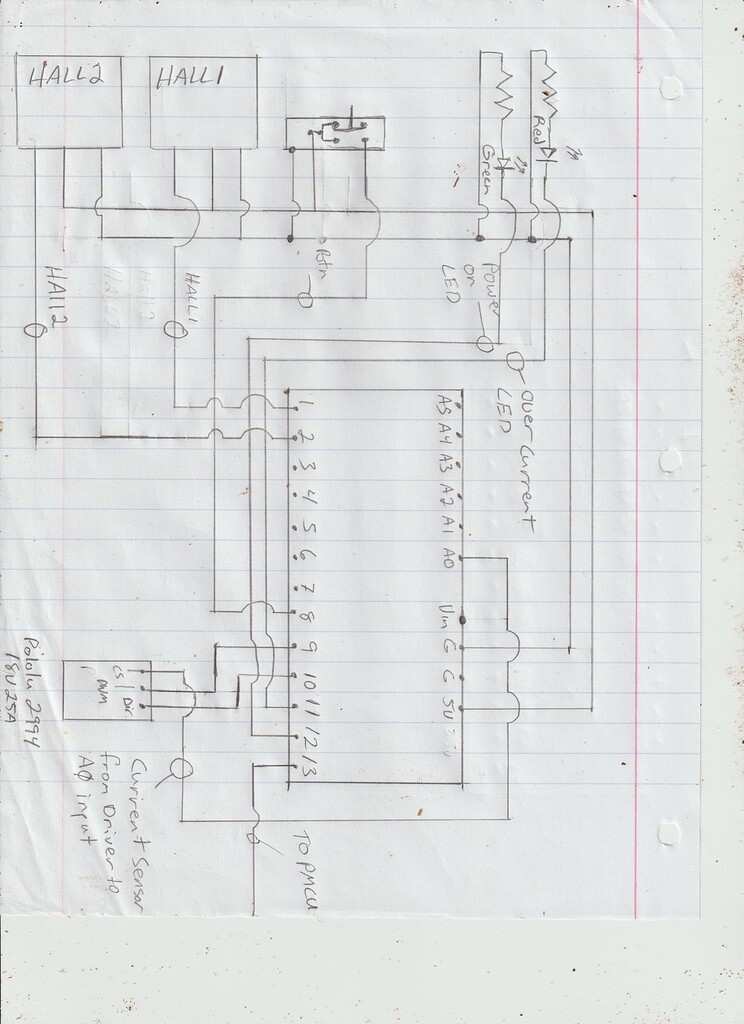 HALL2
HALL1
Red
Green
Btn
Power
on
LED
HAll2
HALL1
HALL2
over current
LED
A5
A4
A3
A2
A1
A0
Vin
G
G
5V
1
2
3
4
5
6
7
8
9
10
11
12
13
CS
Dir
PWM
Pololu 2994
18V 25A
Current Sensor
from Driver to
AØ input
TO PMCU